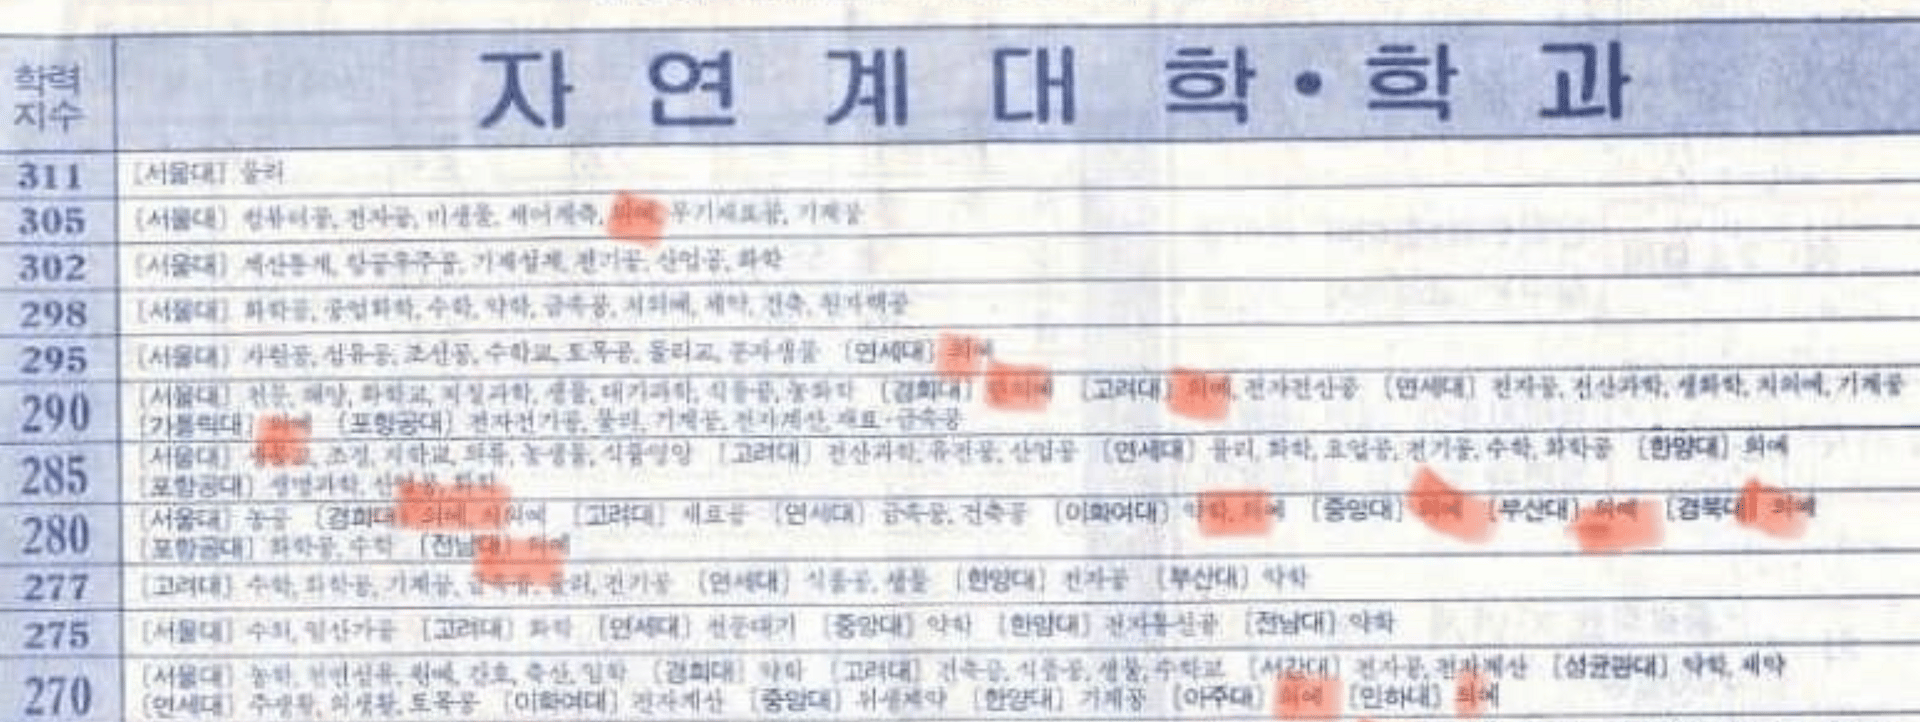 자연계대학·학과
학력
지수
311 [서울대] 물리
305 [서울대] 컴퓨터공, 전자공, 미생물, 제어계측, 의예, 무기재료공, 기계공
302 [서울대] 계산통계, 항공우주공, 기계설계, 전기공, 산업공, 화학
298 [서울대] 화학공, 공업화학, 수학, 약학, 금속공, 치의예, 제약, 건축, 원자핵공
295 [서울대] 자원공, 섬유공, 조선공, 수학교, 토목공, 물리교, 분자생물 [연세대] 의예
290 [서울대] 천문, 해양, 화학교, 지질과학, 생물, 대기과학, 식품공, 농화학 [경희대] 한의예 [고려대] 의예, 전자전산공 [연세대] 전자공, 전산과학, 생화학, 치의예, 기계공
[가톨릭대] 의예 [포항공대] 전자전기공, 물리, 기계공, 전자계산, 재료·금속공
285 [서울대] 조경, 지학교, 의류, 농생물, 식품영양 [고려대] 전산과학, 유전공, 산업공 [연세대] 물리, 화학, 요업공, 전기공, 수학, 화학공 [한양대] 의예
[포항공대] 생명과학, 산업공, 화학
280 [서울대] 농공 [경희대] 의예, 치의예 [고려대] 재료공 [연세대] 금속공, 건축공 [이화여대] 약학, 의예 [중앙대] 의예 [부산대] 의예 [경북대] 의예
[포항공대] 화학공, 수학 [전남대] 의예
277 [고려대] 수학, 화학공, 기계공, 금속공, 물리, 전기공 [연세대] 식품공, 생물 [한양대] 전자공 [부산대] 약학
275 [서울대] 수의, 임산가공 [고려대] 화학 [연세대] 천문대기 [중앙대] 약학 [한양대] 전자통신공 [전남대] 약학
270 [서울대] 농학, 천연섬유, 원예, 간호, 축산, 임학 [경희대] 약학 [고려대] 건축공, 식품공, 생물, 수학교 [서강대] 전자공, 전자계산 [성균관대] 약학, 제약
[연세대] 주생활, 의생활, 토목공 [이화여대] 전자계산 [중앙대] 위생제약 [한양대] 기계공 [아주대] 의예 [인하대] 의예